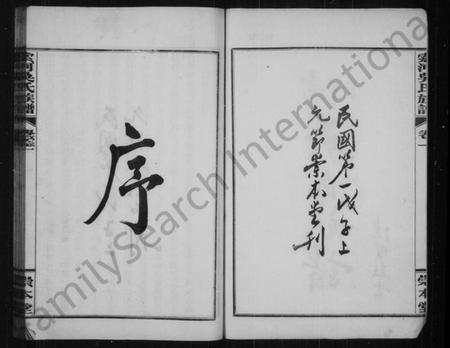 宗河吳氏族譜 卷之一 崇本堂
民國第一戊子上
元節崇本堂刊
序
宗河吳氏族譜 卷之一 崇本堂
FamilySearch International